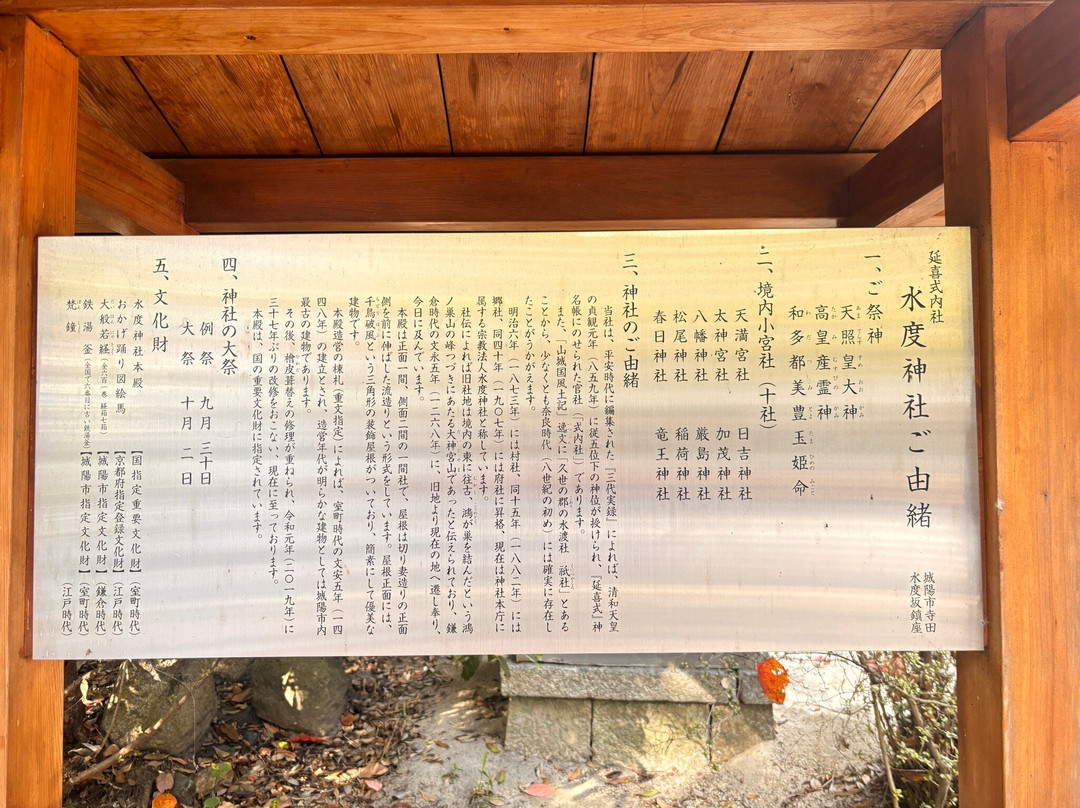 延喜式内社
水度神社ご由緒
城陽市寺田
水度坂鎮座
一、ご祭神
天照皇大神
高皇産霊神
和多都美豊玉姫命
二、境内小宮社（十社）
天満宮社 日吉神社
太神宮社 加茂神社
八幡神社 厳島神社
松尾神社 稲荷神社
春日神社 竜王神社
三、神社のご由緒
当社は、平安時代に編集された『三代実録』によれば、清和天皇
の貞観元年（八五九年）に従五位下の神位が授けられ、『延喜式』神
名帳にのせられた官社（「式内社」）であります。
また、「山城国風土記」逸文に「久世の郡の水渡社　祇社」とある
ことから、少なくとも奈良時代（八世紀の初め）には確実に存在し
たことがうかがえます。
明治六年（一八七三年）には村社、同十五年（一八八二年）には
郷社、同四十年（一九〇七年）には府社に昇格、現在は神社本庁に
属する宗教法人水度神社と称しています。
社伝によれば旧社地は境内の東に往古、鴻が巣を結んだという鴻
ノ巣山の峰つづきにあたる大神宮山であったと伝えられており、鎌
倉時代の文永五年（一二六八年）に、旧地より現在の地へ遷し奉り、
今日に及んでいます。
本殿は正面一間、側面二間の一間社で、屋根は切り妻造りの正面
側を前に伸ばした流造りという形式をしています。屋根正面には、
千鳥破風という三角形の装飾屋根がついており、簡素にして優美な
建物です。
本殿造営の棟札（重文指定）によれば、室町時代の文安五年（一四
四八年）の建立とされ、造営年代が明らかな建物としては城陽市内
最古の建物であります。
その後、檜皮葺替えの修理が重ねられ、令和元年（二〇一九年）に
三十七年ぶりの改修をおこない、現在に至っております。
本殿は、国の重要文化財に指定されています。
四、神社の大祭
例祭 九月三十日
大祭 十月二日
五、文化財
水度神社本殿 【国指定重要文化財】（室町時代）
おかげ踊り図絵馬 【京都府指定登録文化財】（江戸時代）
大般若経（全六百一巻 経箱七箱） 【城陽市指定文化財】（鎌倉時代）
鉄湯釜（全国で六番目に古い鉄湯釜） 【城陽市指定文化財】（室町時代）
梵鐘 （江戸時代）